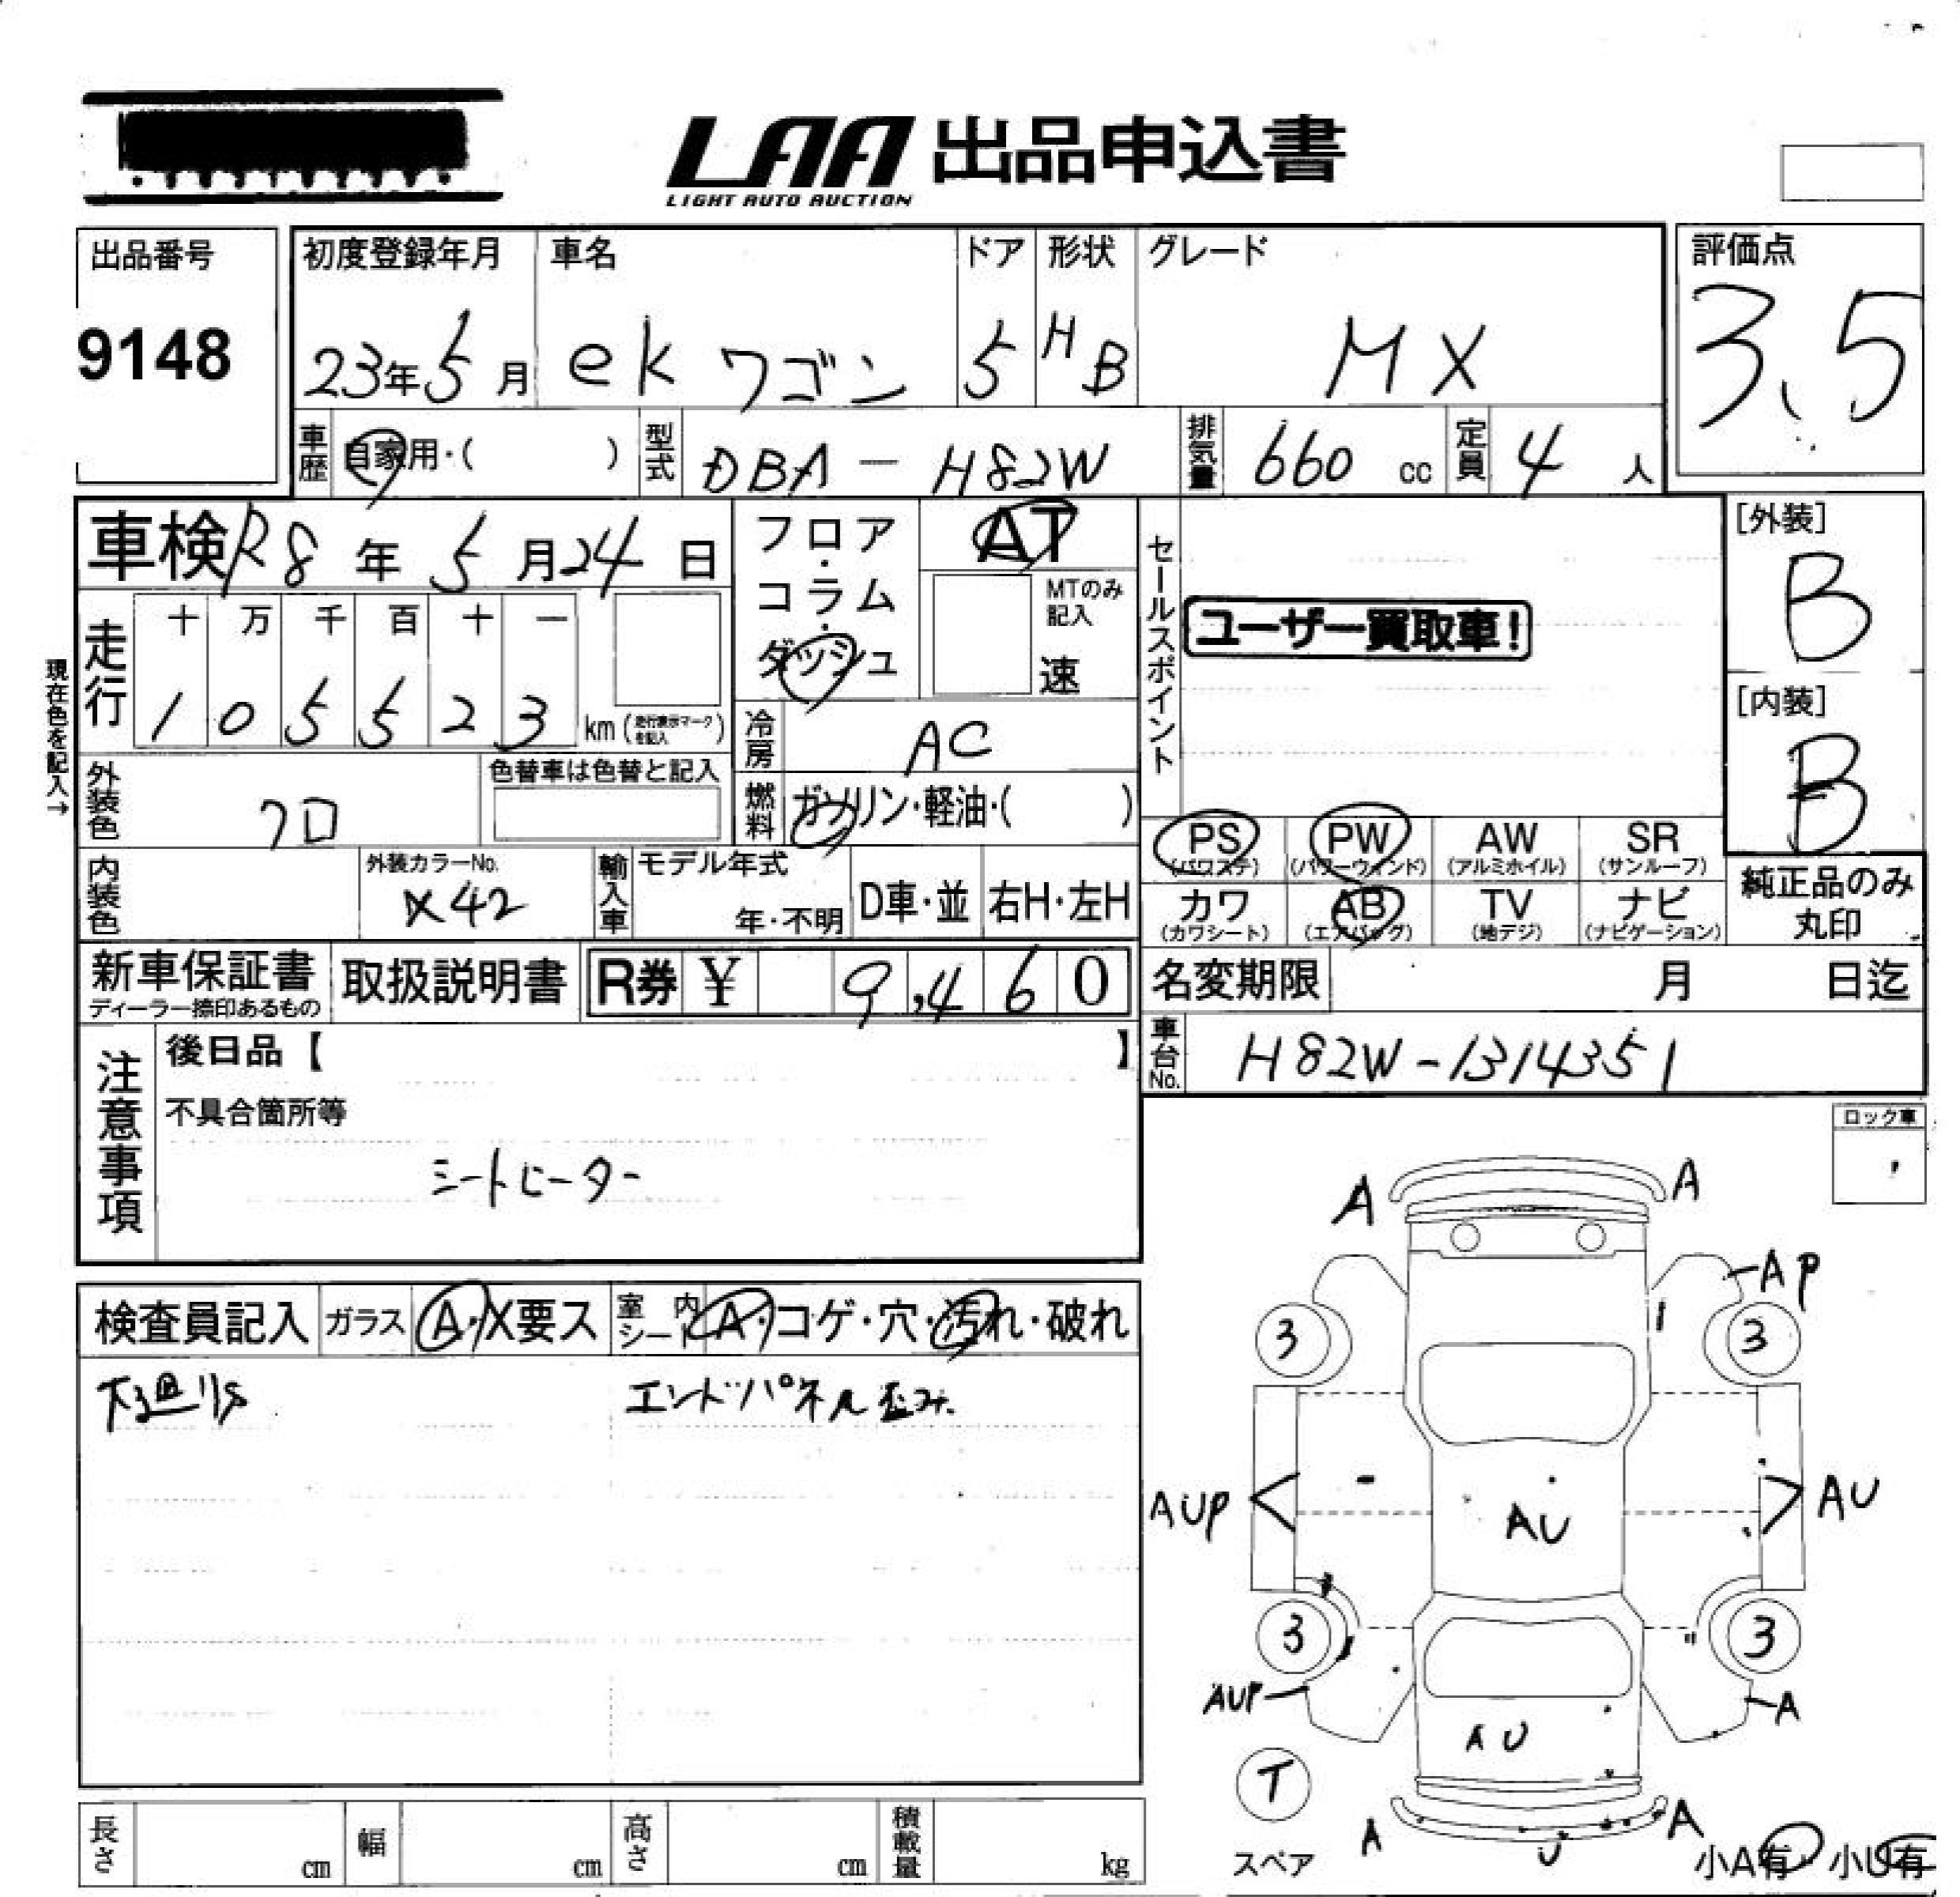 LAA 出品申込書
LIGHT AUTO AUCTION
出品番号
9148
初度登録年月
23年5月
車名
ekワゴン
ドア
5
形状
HB
グレード
MX
評価点
3.5
車歴
自家用・( )
型式
DBA-H82W
排気量
660 cc
定員
4人
車検 R8年5月24日
フロア・コラム・ダッシュ
AT
MTのみ記入
速
セールスポイント
ユーザー買取車!
[外装]
B
[内装]
B
現在色を記入→
走行
十 万 千 百 十 一
1 0 5 5 2 3 km (走行表示マークを記入)
冷房
AC
外装色
クロ
色替車は色替と記入
燃料
ガソリン・軽油・( )
PS (パワステ)
PW (パワーウィンド)
AW (アルミホイル)
SR (サンルーフ)
カワ (カワシート)
AB (エアバッグ)
TV (地デジ)
ナビ (ナビゲーション)
純正品のみ丸印
内装色
外装カラーNo.
X42
輸入車
モデル年式
年・不明
D車・並
右H・左H
新車保証書
ディーラー捺印あるもの
取扱説明書
R券 ¥ 9,460
名変期限 月 日迄
車台No.
H82W-1314351
注意事項
後日品【 】
不具合箇所等
シートヒーター
ロック車
検査員記入
ガラス
A・X要ス
室内シート
A・コゲ・穴・汚れ・破れ
下廻りS
エンドパネル歪み
A
A
AP
3
3
AUP
AU
AU
3
3
AUP
A
AU
T
スペア
A
U
A
小A有・小U有
長さ cm
幅 cm
高さ cm
積載量 kg